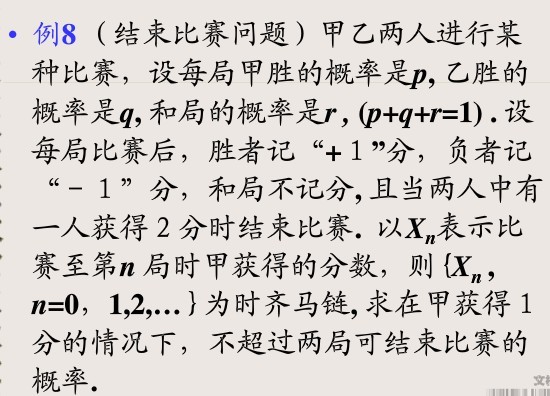 • 例8 （结束比赛问题）甲乙两人进行某
种比赛，设每局甲胜的概率是p, 乙胜的
概率是q, 和局的概率是r , (p+q+r=1) . 设
每局比赛后，胜者记“+１”分，负者记
“－１”分，和局不记分, 且当两人中有
一人获得２分时结束比赛. 以Xn表示比
赛至第n 局时甲获得的分数，则 {Xn ,
n=0，1,2,… } 为时齐马链, 求在甲获得１
分的情况下，不超过两局可结束比赛的
概率.